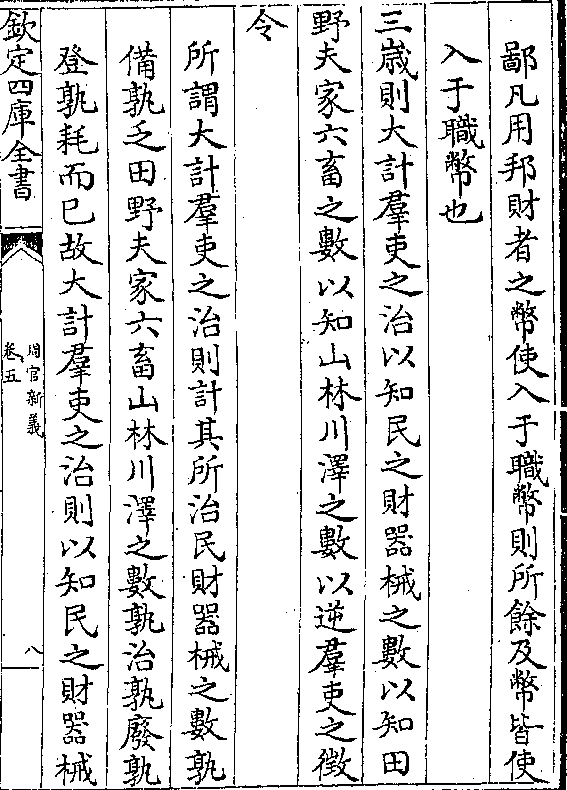 鄙凡用邦財者之幣使入于職幣則所餘及幣皆使
入于職幣也
三嵗則大計羣吏之治以知民之財器械之數以知田
野夫家六畜之數以知山林川澤之數以逆羣吏之徵
令
所謂大計羣吏之治則計其所治民財器械之數孰
備孰乏田野夫家六畜山林川澤之數孰治孰廢孰
登孰耗而已故大計羣吏之治則以知民之財器械
欽定四庫全書
周官新義
卷五
八